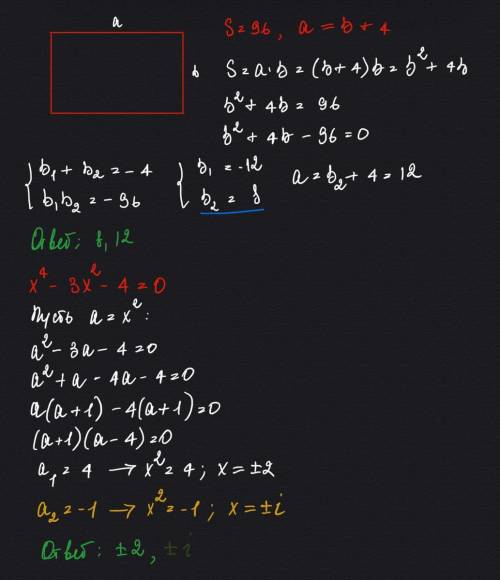 a
b
S=96, a = b + 4
S=a·b=(b+4)b=b²+4b
b²+4b=96
b²+4b-96=0
{b₁+b₂=-4
b₁b₂=-96
{b₁=-12
b₂=8
a=b₂+4=12
Ответ: 8,12
x⁴-3x²-4=0
Пусть a=x²:
a²-3a-4=0
a²+a-4a-4=0
a(a+1)-4(a+1)=0
(a+1)(a-4)=0
a₁=4 → x²=4; x=±2
a₂=-1 → x²=-1; x=±i
Ответ: ±2, ±i